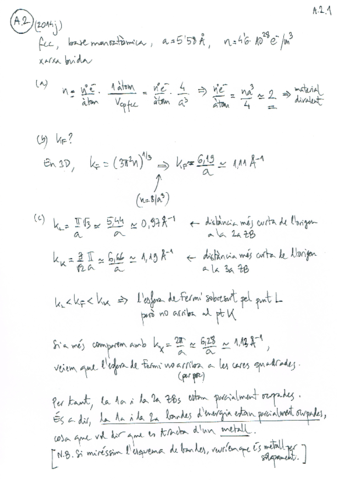 A.2.1
A.2 (2014j)
fcc, base monoatòmica, a = 5'58 Å, n = 4'6 10²⁸ e⁻/m³
xarxa buida
(a) n = nº e⁻/àtom · 1 àtom/Vcpfcc = nº e⁻/àtom · 4/a³ ⇒ nº e⁻/àtom = na³/4 ≃ 2 ⇒ material divalent
(b) kF?
En 3D, kF = (3π²n)^1/3 ⇒ kF = 6,19/a ≃ 1,11 Å⁻¹
(n = 8/a³)
(c) kL = π/a √3 ≃ 5,44/a ≃ 0,97 Å⁻¹ ← distància més curta de l'origen a la 2a ZB
kK = 3/√2 π/a ≃ 6,66/a ≃ 1,19 Å⁻¹ ← distància més curta de l'origen a la 3a ZB
kL < kF < kK ⇒ l'esfera de Fermi sobresurt pel punt L
però no arriba al pt K
Si a més comparem amb kX = 2π/a ≃ 6,28/a ≃ 1,13 Å⁻¹,
veiem que l'esfera de Fermi no arriba a les cares quadrades.
(per poc)
Per tant, la 1a i la 2a ZBs estan parcialment ocupades.
És a dir, la 1a i la 2a bandes d'energia estan parcialment ocupades,
cosa que vol dir que es tracta d'un metall.
[N.B. Si miréssim l'esquema de bandes, veuríem que és metall per
solapament.]